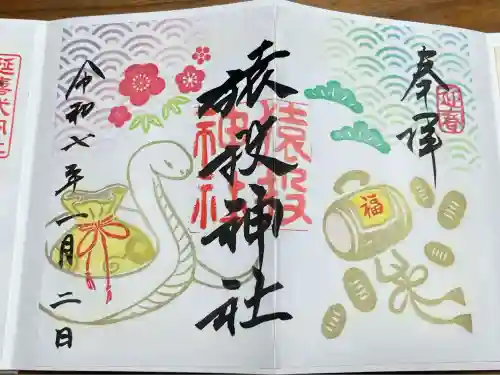 奉拝
迎春
猿投神社
猿投神社
福
令和七年一月二日
延喜式内社